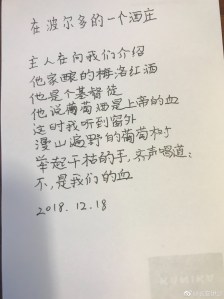 在波尔多的一个酒庄
主人在向我们介绍
他家酿的梅洛红酒
他是个基督徒
他说葡萄酒是上帝的血
这时我听到窗外
漫山遍野的葡萄树
举起干枯的手,齐声喝道:
不,是我们的血
2018.12.18